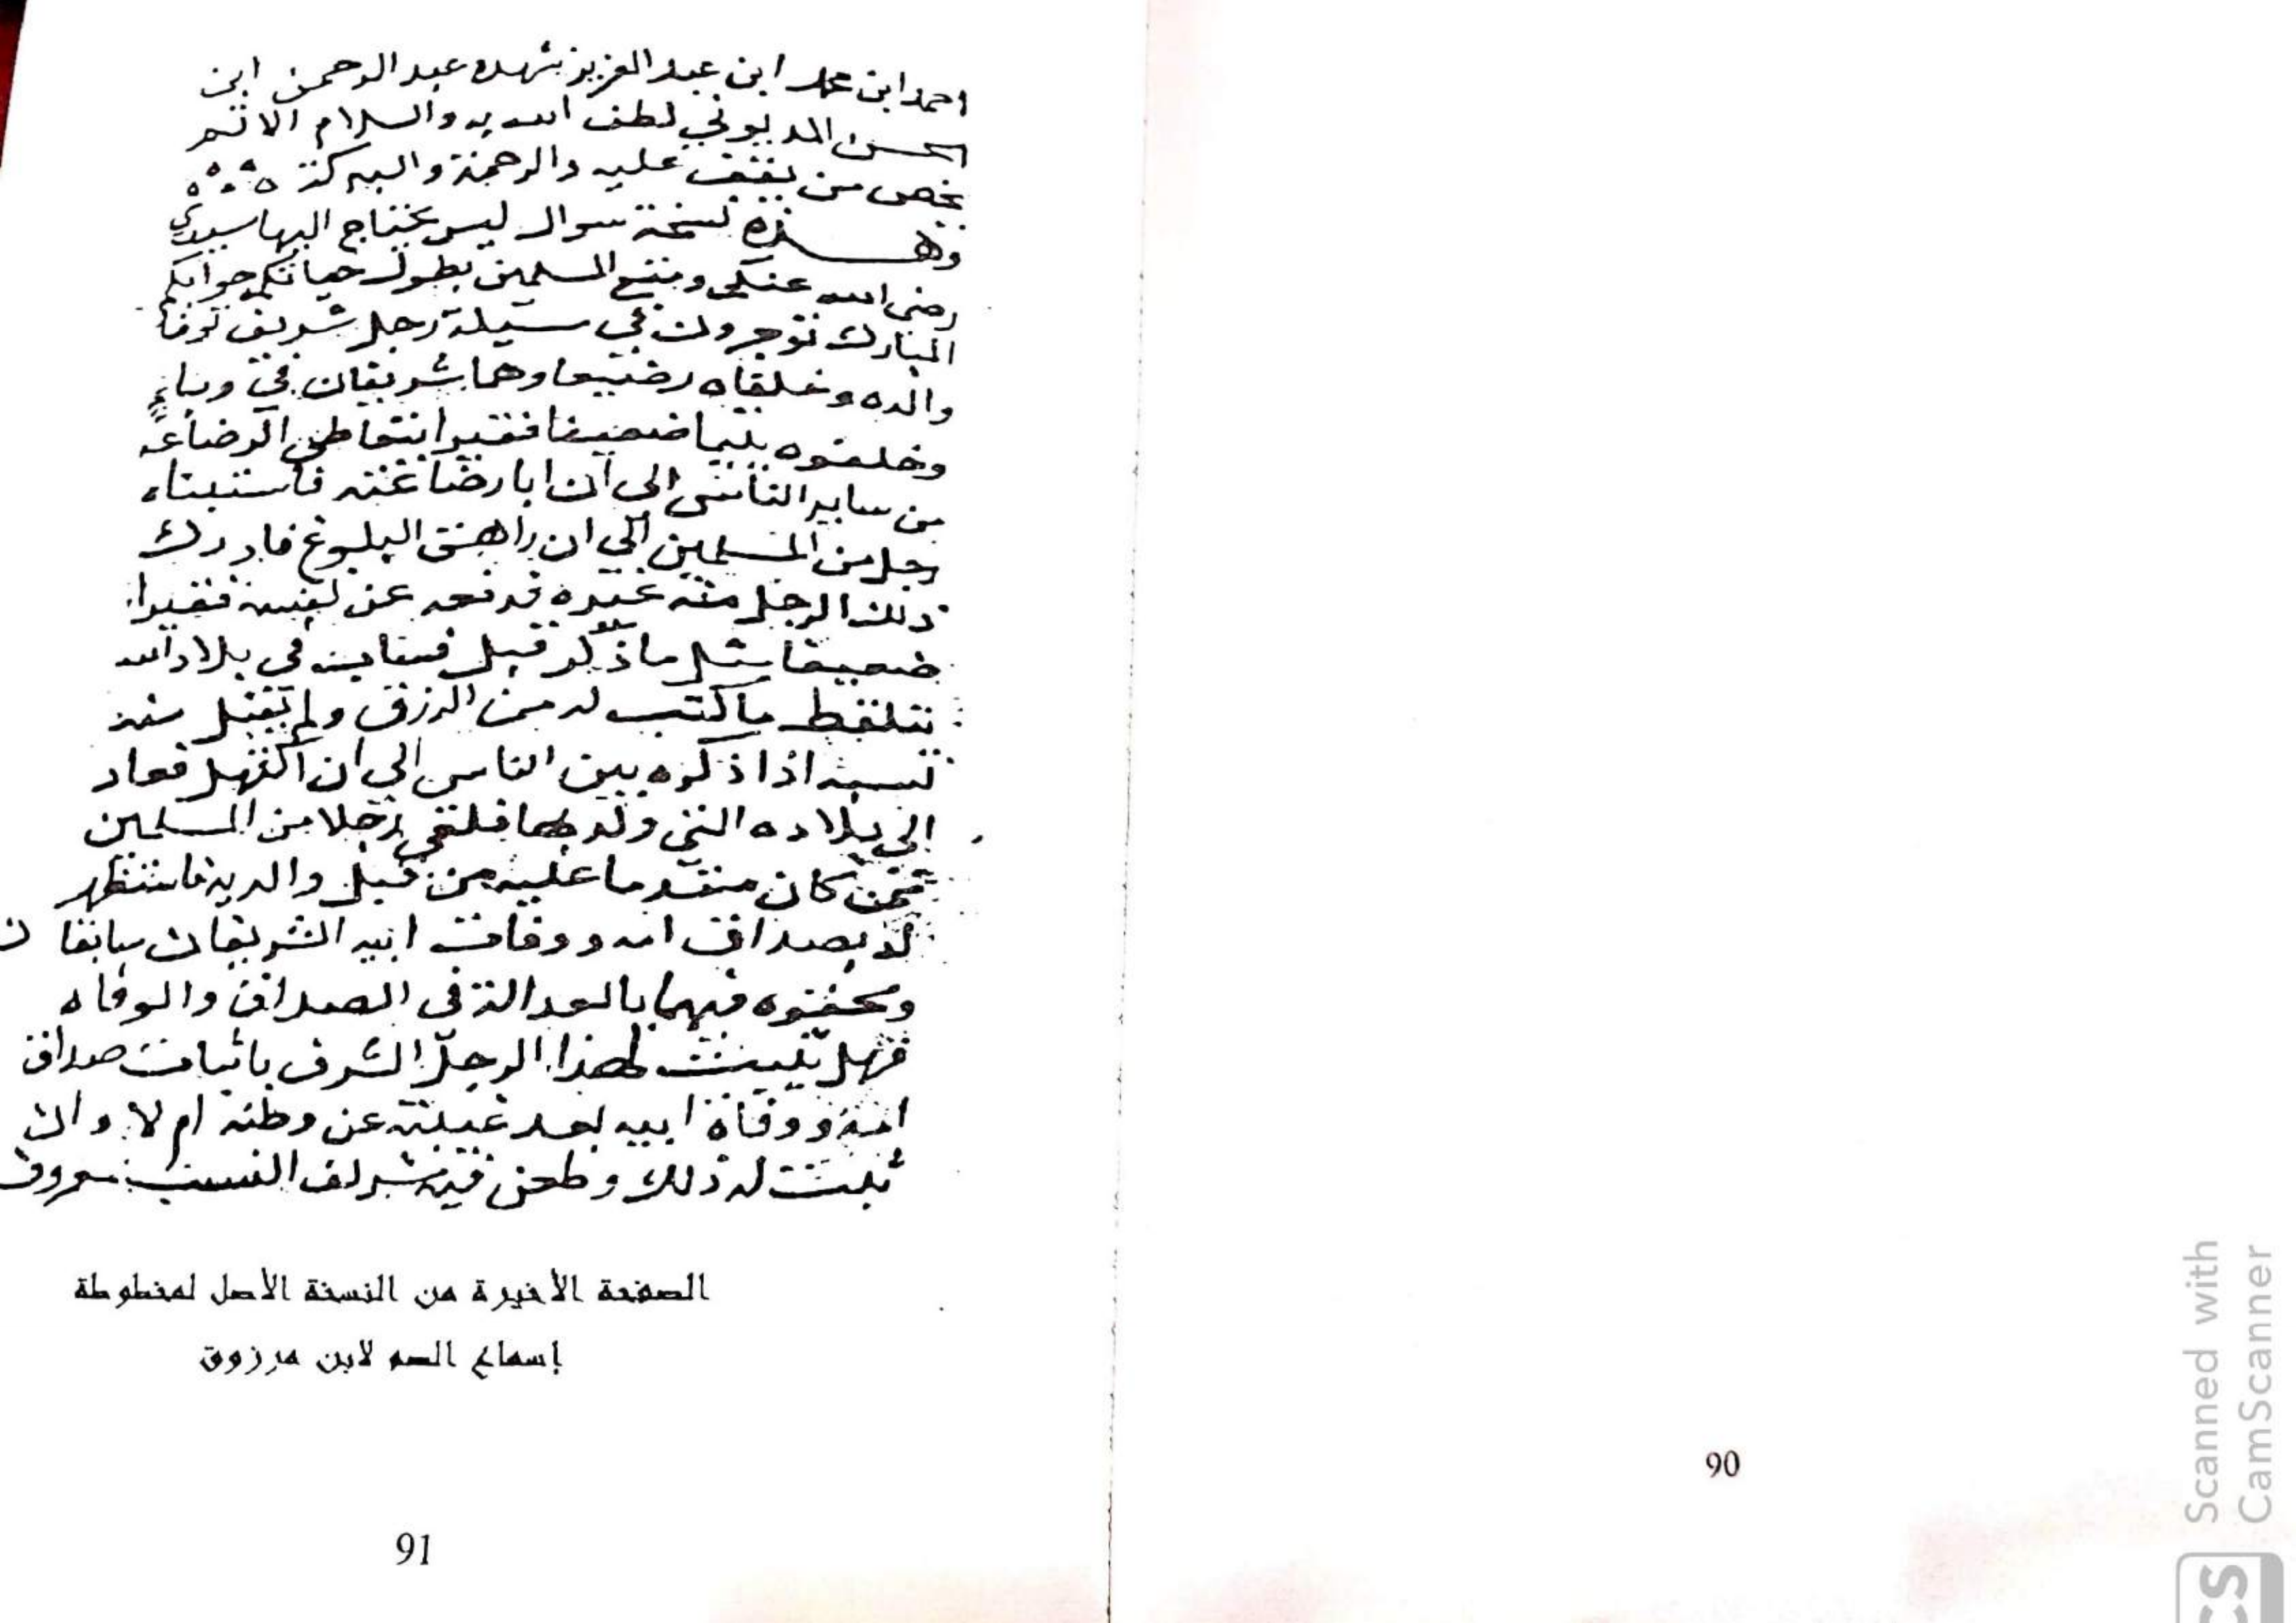 احمد ابن محمد ابن عبد العزيز شهده عبد الرحمن ابن
الحسن المديوني لطف الله به والسلام الاتم
يخص من يقف عليه والرحمة والبركة
وهذه نسخة سوال ليس يحتاج اليها سيدي
رضي الله عنكم ومتع المسلمين بطول حياتكم جوابكم
المبارك توجرون في سيلة رجل شريف توفا
والده وخلفاه رضيعا وهما شريفان في وباء
وخلفوه يتيما ضعيفا فقيرا يتعاطى الرضاعة
من ساير الناس الى ان رضاعته
رجل من المسلمين الى ان راهق البلوغ فادرك
ذلك الرجل منه غيره فدفعه عن نفسه فقيرا
ضعيفا مثل ما ذكر قبل في بلاد الله
يتلقط ما كتب له من الرزق ولم يقبل منه
نسبه اذا ذكره بين الناس الى ان اكتهل فعاد
الى بلاده التي ولد بها فلقي رجلا من المسلمين
ممن كان متقدما عليه من قبل والديه فاستظهر
له بصداق امه ووفات ابيه الشريفان سابقا
فيهما بالعدالة في الصداق والوفاه
فهل يثبت لهذا الرجل الشرف باثبات صداق
امه ووفاة ابيه بعد غيبته عن وطنه ام لا وان
ثبت له ذلك وطعن فيه شريف النسب معروف
الصفحة الأخيرة من النسخة الأصل لمخطوطة
إسماع الصم لابن مرزوق
91
90
Scanned with
CamScanner
CS